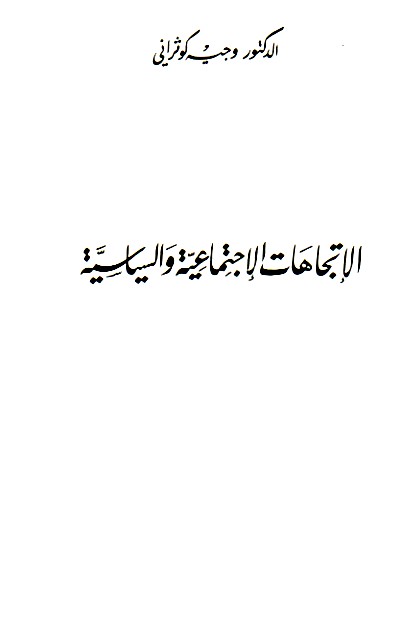 الدكتور وجيه كوثراني
الإتجاهات الإجتماعيّة والسياسيَّة